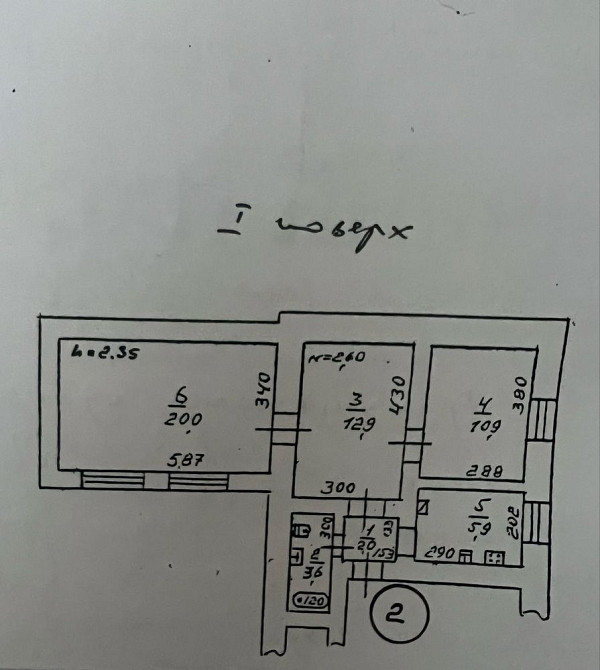 I поверх
h=2.35
h=2,60
340
430
380
6
200
3
129
4
109
5,87
300
288
5
5,9
202
290
1
2,0
133
153
300
2
3,6
120
2